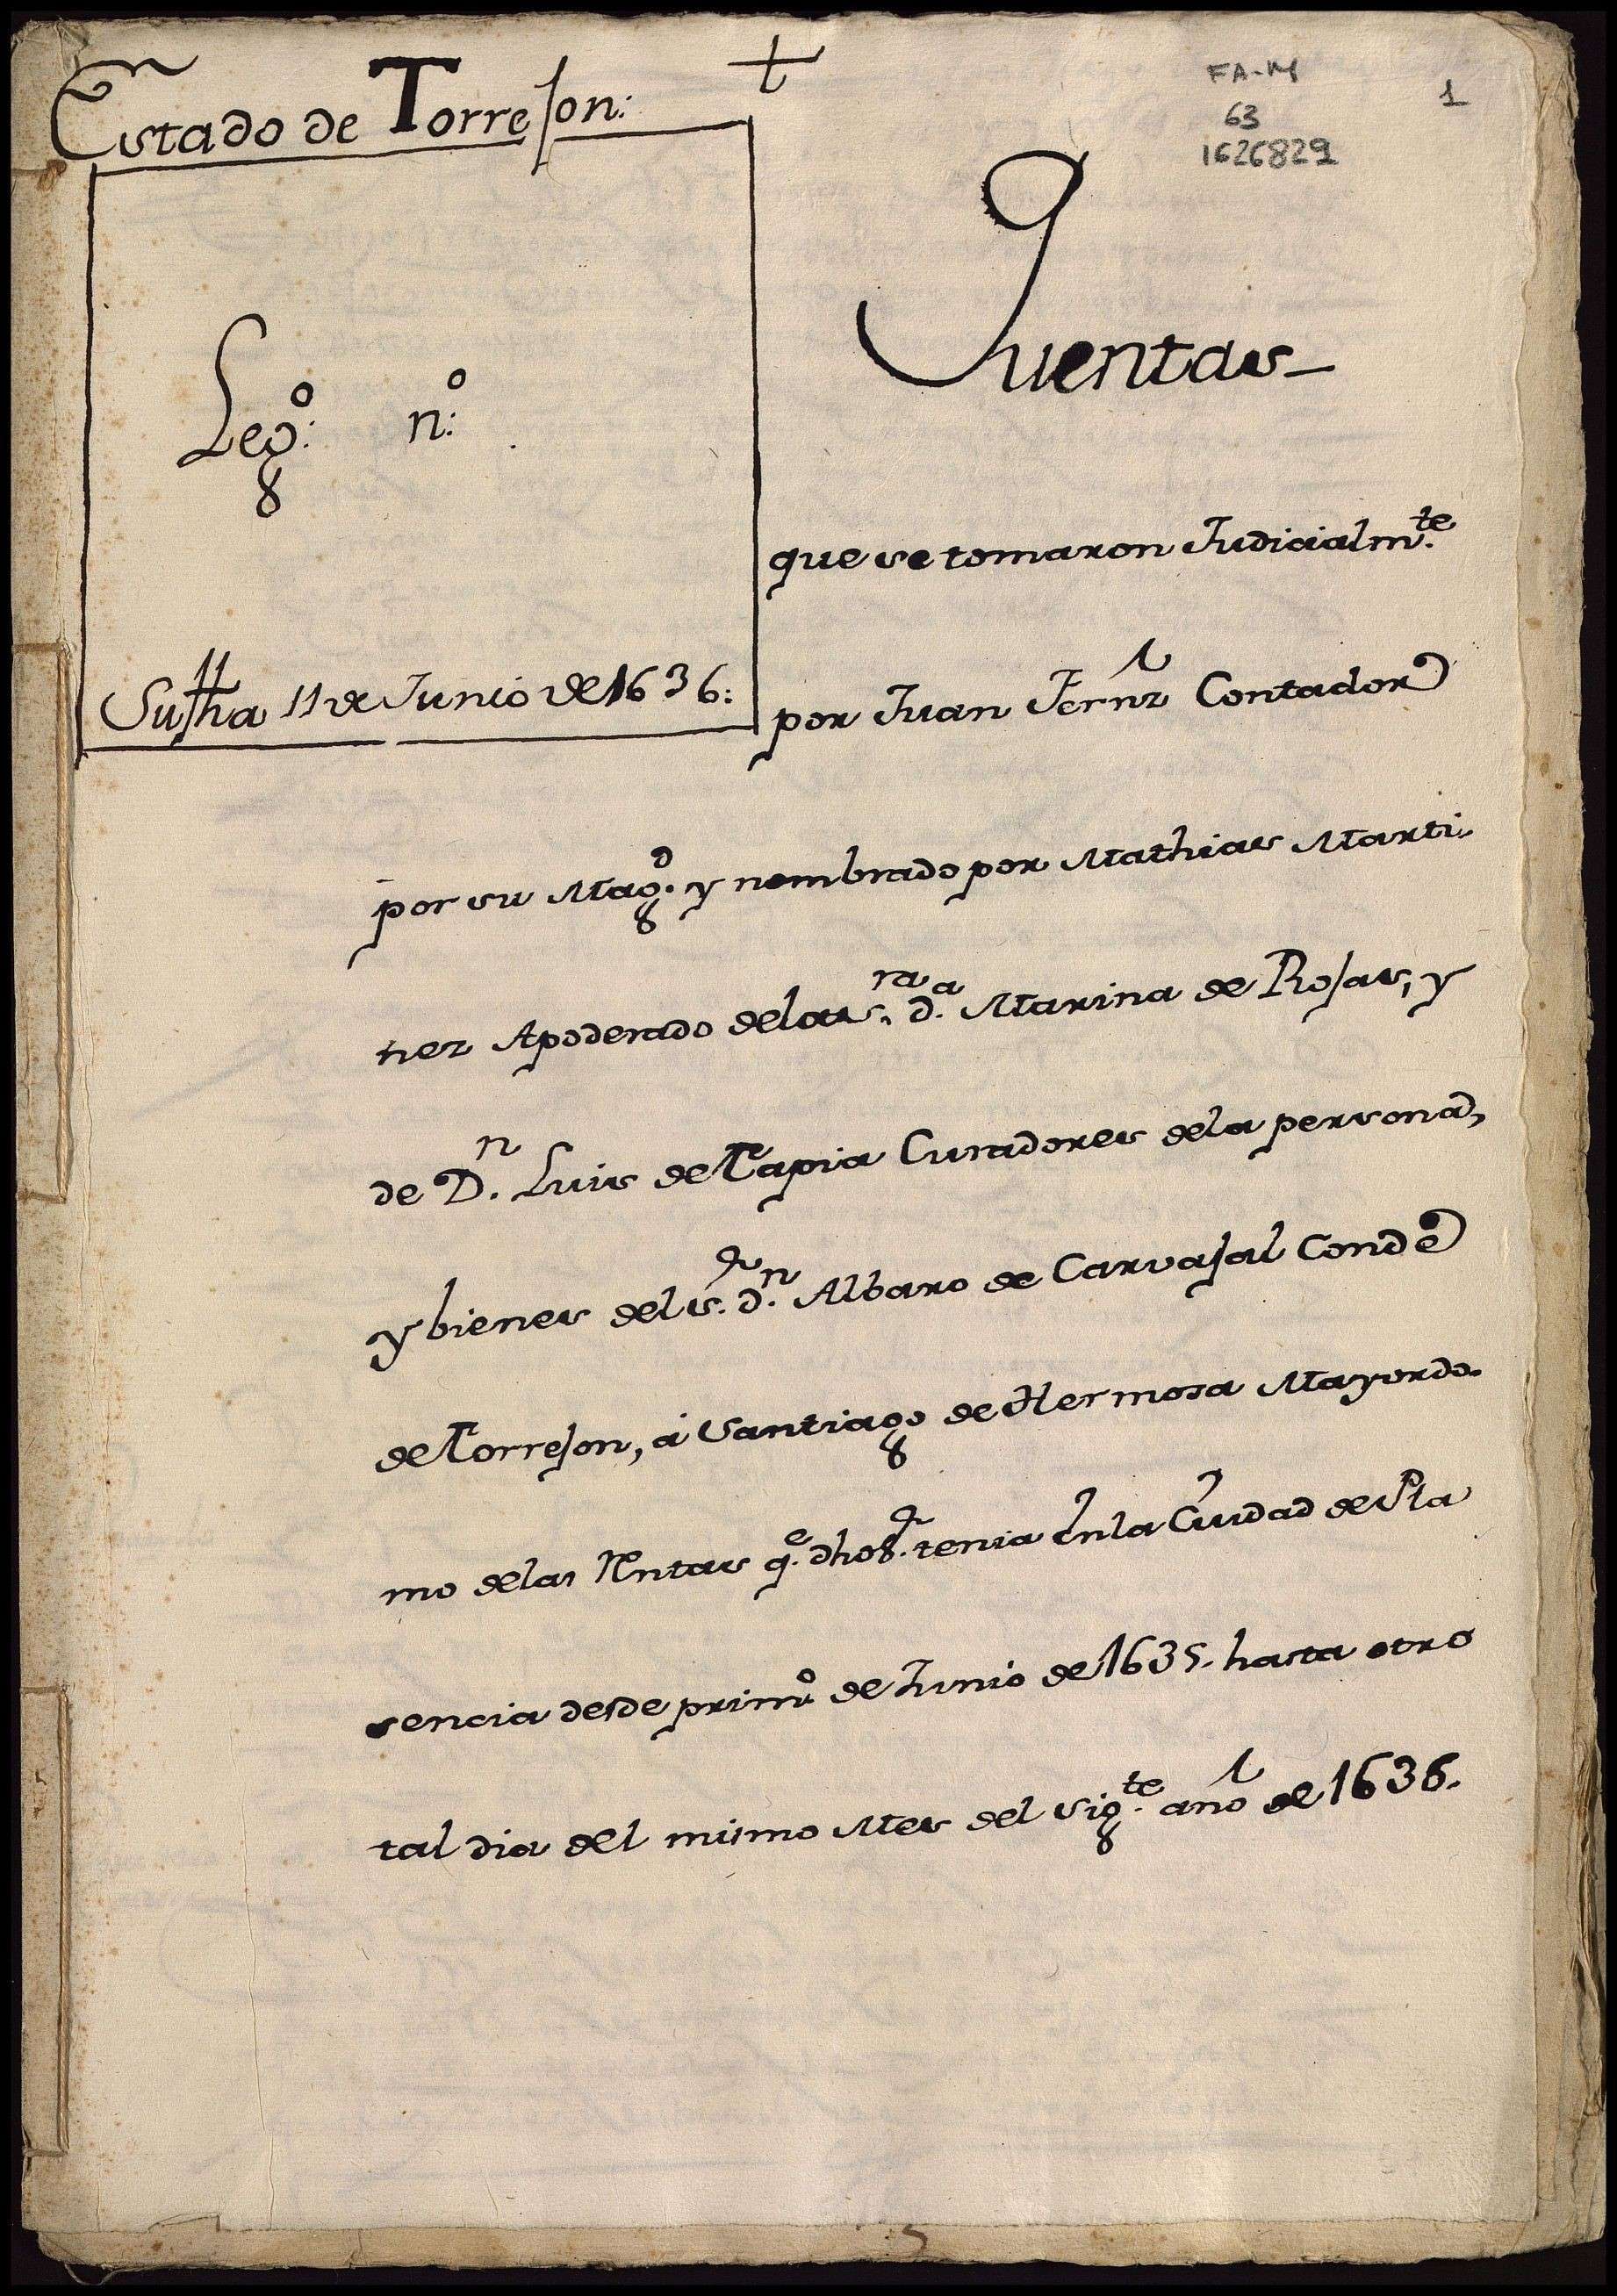 Estado de Torrejon:
+
FA-M
63
1626829
1
Leg.º: n.º:
Su fha 11 de Junio de 1636:
Quentas-
que se tomaron Judicialm.te
por Juan Fernz Contador
por su Mag.d y nombrado por Mathias Marti-
nez Apoderado de la s.ra d.a Marina de Rojas, y
de D.n Luis de Tapia Curadores de la persona,
y bienes del s.r d.n Albaro de Carvajal Conde
de Torrejon, á Santiago de Hermosa Mayordo-
mo de las Rentas q.e dho s.r tenia en la Ciudad de Pla
sencia desde primº de Junio de 1635. hasta otro
tal dia del mismo Mes del sig.te año de 1636.